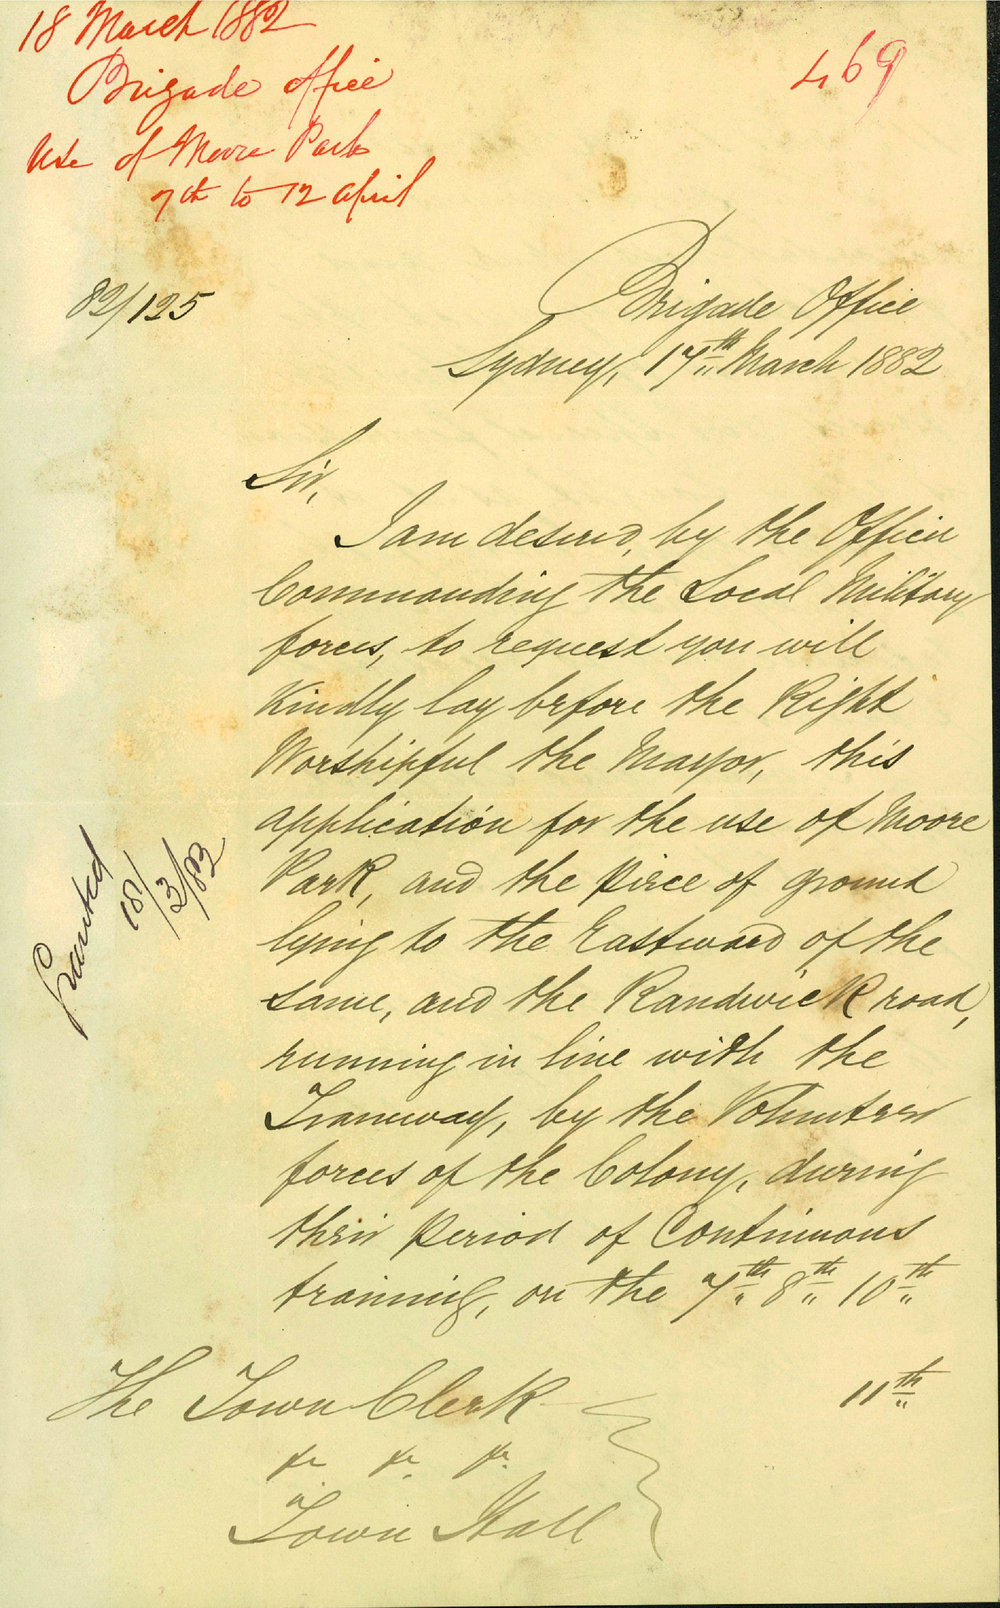 18 March 1882
Brigade Office
Use of Moore Park
7th to 12 April
469
82/125
Brigade Office
Sydney, 17th March 1882
Sir,
I am desired, by the Officer
Commanding the Local Military
forces, to request you will
Kindly lay before the Right
Worshipful the Mayor, this
application for the use of Moore
Park, and the piece of ground
lying to the Eastward of the
same, and the Randwick road,
running in line with the
Tramway, by the Volunteer
forces of the Colony, during
their period of Continuous
training, on the 7th 8th 10th
11th
Granted
18/3/82
The Town Clerk
&c &c &c.
Town Hall